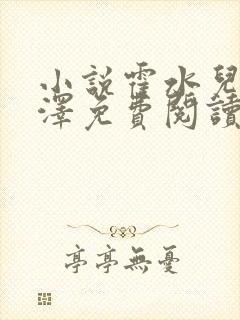 小說霍水兒
澤免費閱讀
亭亭無憂